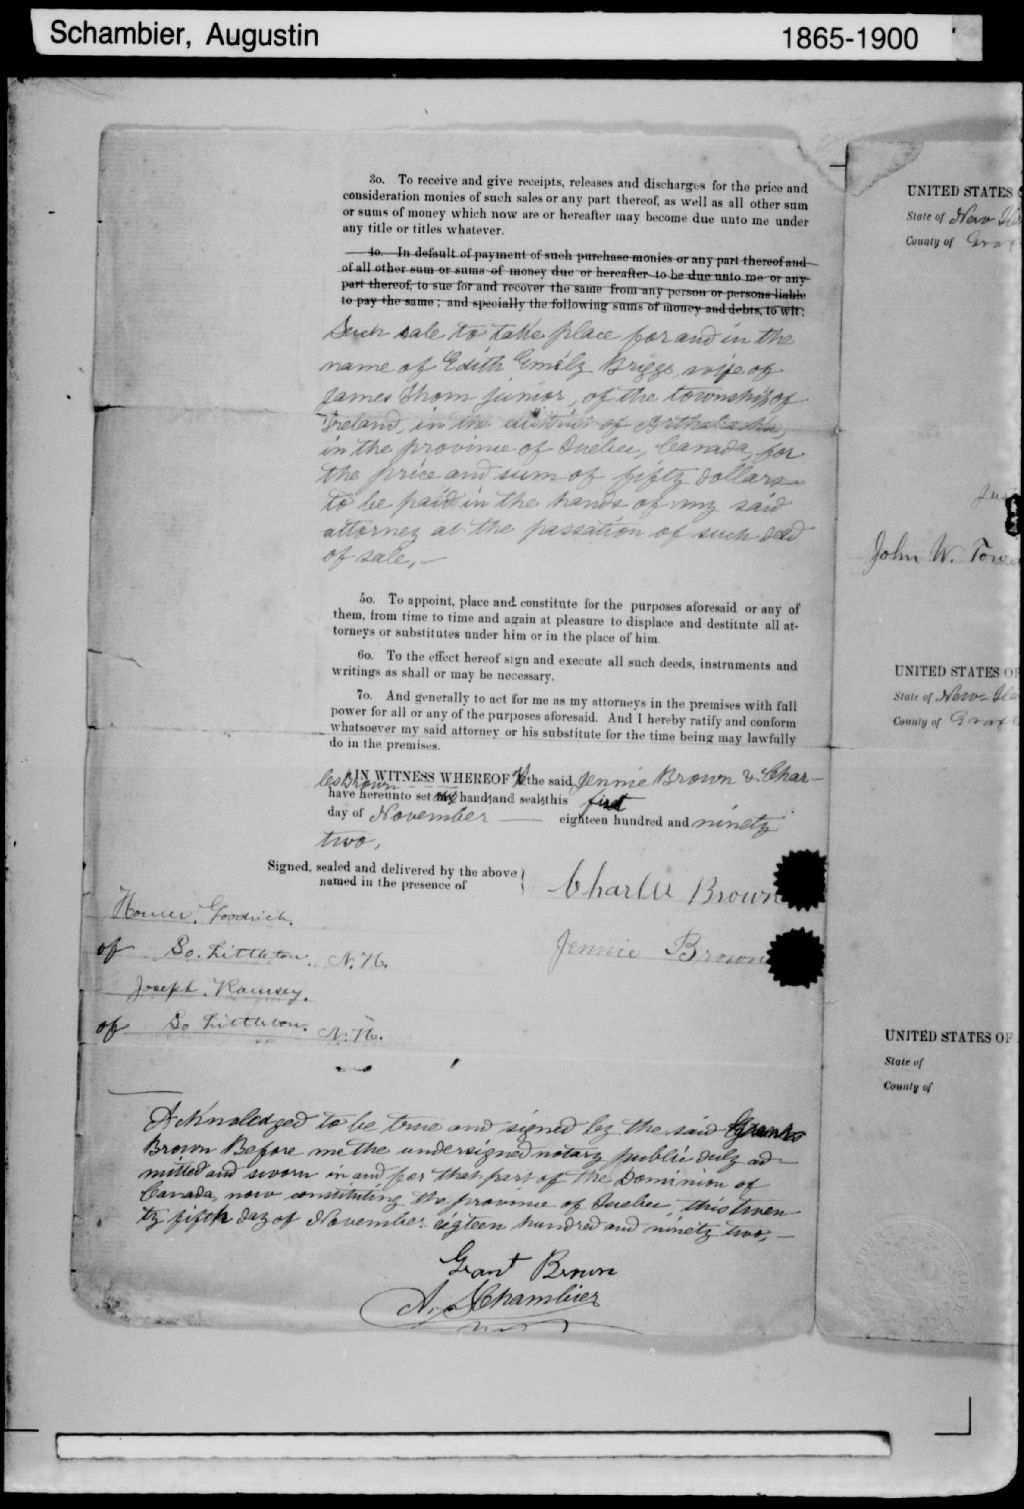 Schambier, Augustin 1865-1900
3o. To receive and give receipts, releases and discharges for the price and
consideration monies of such sales or any part thereof, as well as all other sum
or sums of money which now are or hereafter may become due unto me under
any title or titles whatever.
4o. In default of payment of such purchase monies or any part thereof and
of all other sum or sums of money due or hereafter to be due unto me or any
part thereof, to sue for and recover the same from any person or persons liable
to pay the same; and specially the following sums of money and debts, to wit:
Such sale to take place for and in the
name of Edith Emily Briggs wife of
James Thom junior, of the township of
Ireland, in the district of Arthabaska,
in the province of Quebec, Canada, for
the price and sum of fifty dollars
to be paid in the hands of my said
attorney at the passation of such deed
of sale, —
5o. To appoint, place and constitute for the purposes aforesaid or any of
them, from time to time and again at pleasure to displace and destitute all at-
torneys or substitutes under him or in the place of him.
6o. To the effect hereof sign and execute all such deeds, instruments and
writings as shall or may be necessary.
7o. And generally to act for me as my attorneys in the premises with full
power for all or any of the purposes aforesaid. And I hereby ratify and conform
whatsoever my said attorney or his substitute for the time being may lawfully
do in the premises.
IN WITNESS WHEREOF the said Jennie Brown & Char-
les Brown
have hereunto set hands and seals this first
day of November — eighteen hundred and ninety
two,
Signed, sealed and delivered by the above
named in the presence of
Charles Brown
Homer Goodrich.
of So. Littleton. N. H.
Jennie Brown
Joseph Ramsey.
of So Littleton. N. H.
Acknoledged to be true and signed by the said
Brown Before me the undersigned notary public duly ad-
mitted and sworn in and for that part of the Dominion of
Canada, now constituting the province of Quebec, this twen
ty fifth day of November eigteen hundred and ninety two, —
Grant Brown
A. Schambier
UNITED STATES
State of New
County of Graf
John W.
UNITED STATES OF
State of New
County of Graf
UNITED STATES OF
State of
County of